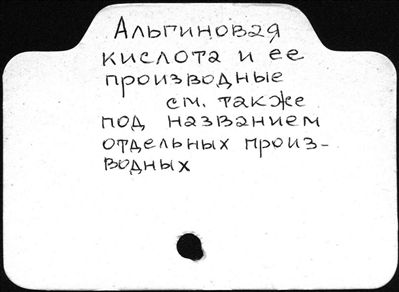 Альгиновая
кислота и ее
производные
см. также
под названием
отдельных произ-
водных